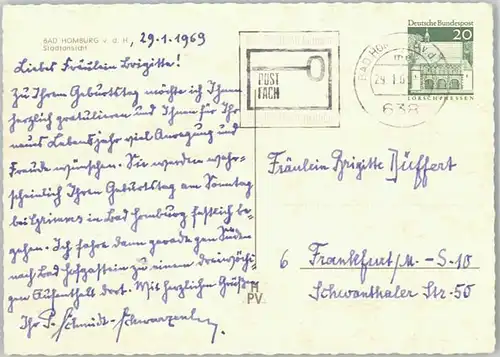 BAD HOMBURG v. d. H.
Stadtansicht
29.1.1969
Liebes Fräulein Brigitte!
Zu Ihrem Geburtstag möchte ich Ihnen
herzlich gratulieren und Ihnen für Ihr
neues Lebensjahr viel Anregung und
Freude wünschen. Sie werden wahr-
scheinlich Ihren Geburtstag am Sonntag
bei in Bad Homburg festlich be-
gehen. Ich fahre dann gerade gen Süden
nach Bad Hofgastein zu einem dreiwöchi-
gen Aufenthalt dort. Mit herzlichen Grüßen
Ihr P. Schmidt-Schwarzenberg
POST
FACH
BAD HOM
29.1.6
638
Deutsche Bundespost
20
LORSCH/HESSEN
Fräulein Brigitte Düffert
6 Frankfurt/M.-S-10
Schwanthaler Str. 50
PV.